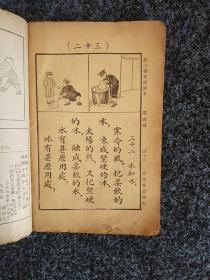 （二十三）
二十二 水和冰
寒冷的風，把柔軟的
水，凍成堅硬的冰，
太陽的熱，又把堅硬
的冰，融成柔軟的水，
水有甚麼用處，
冰有甚麼用處，